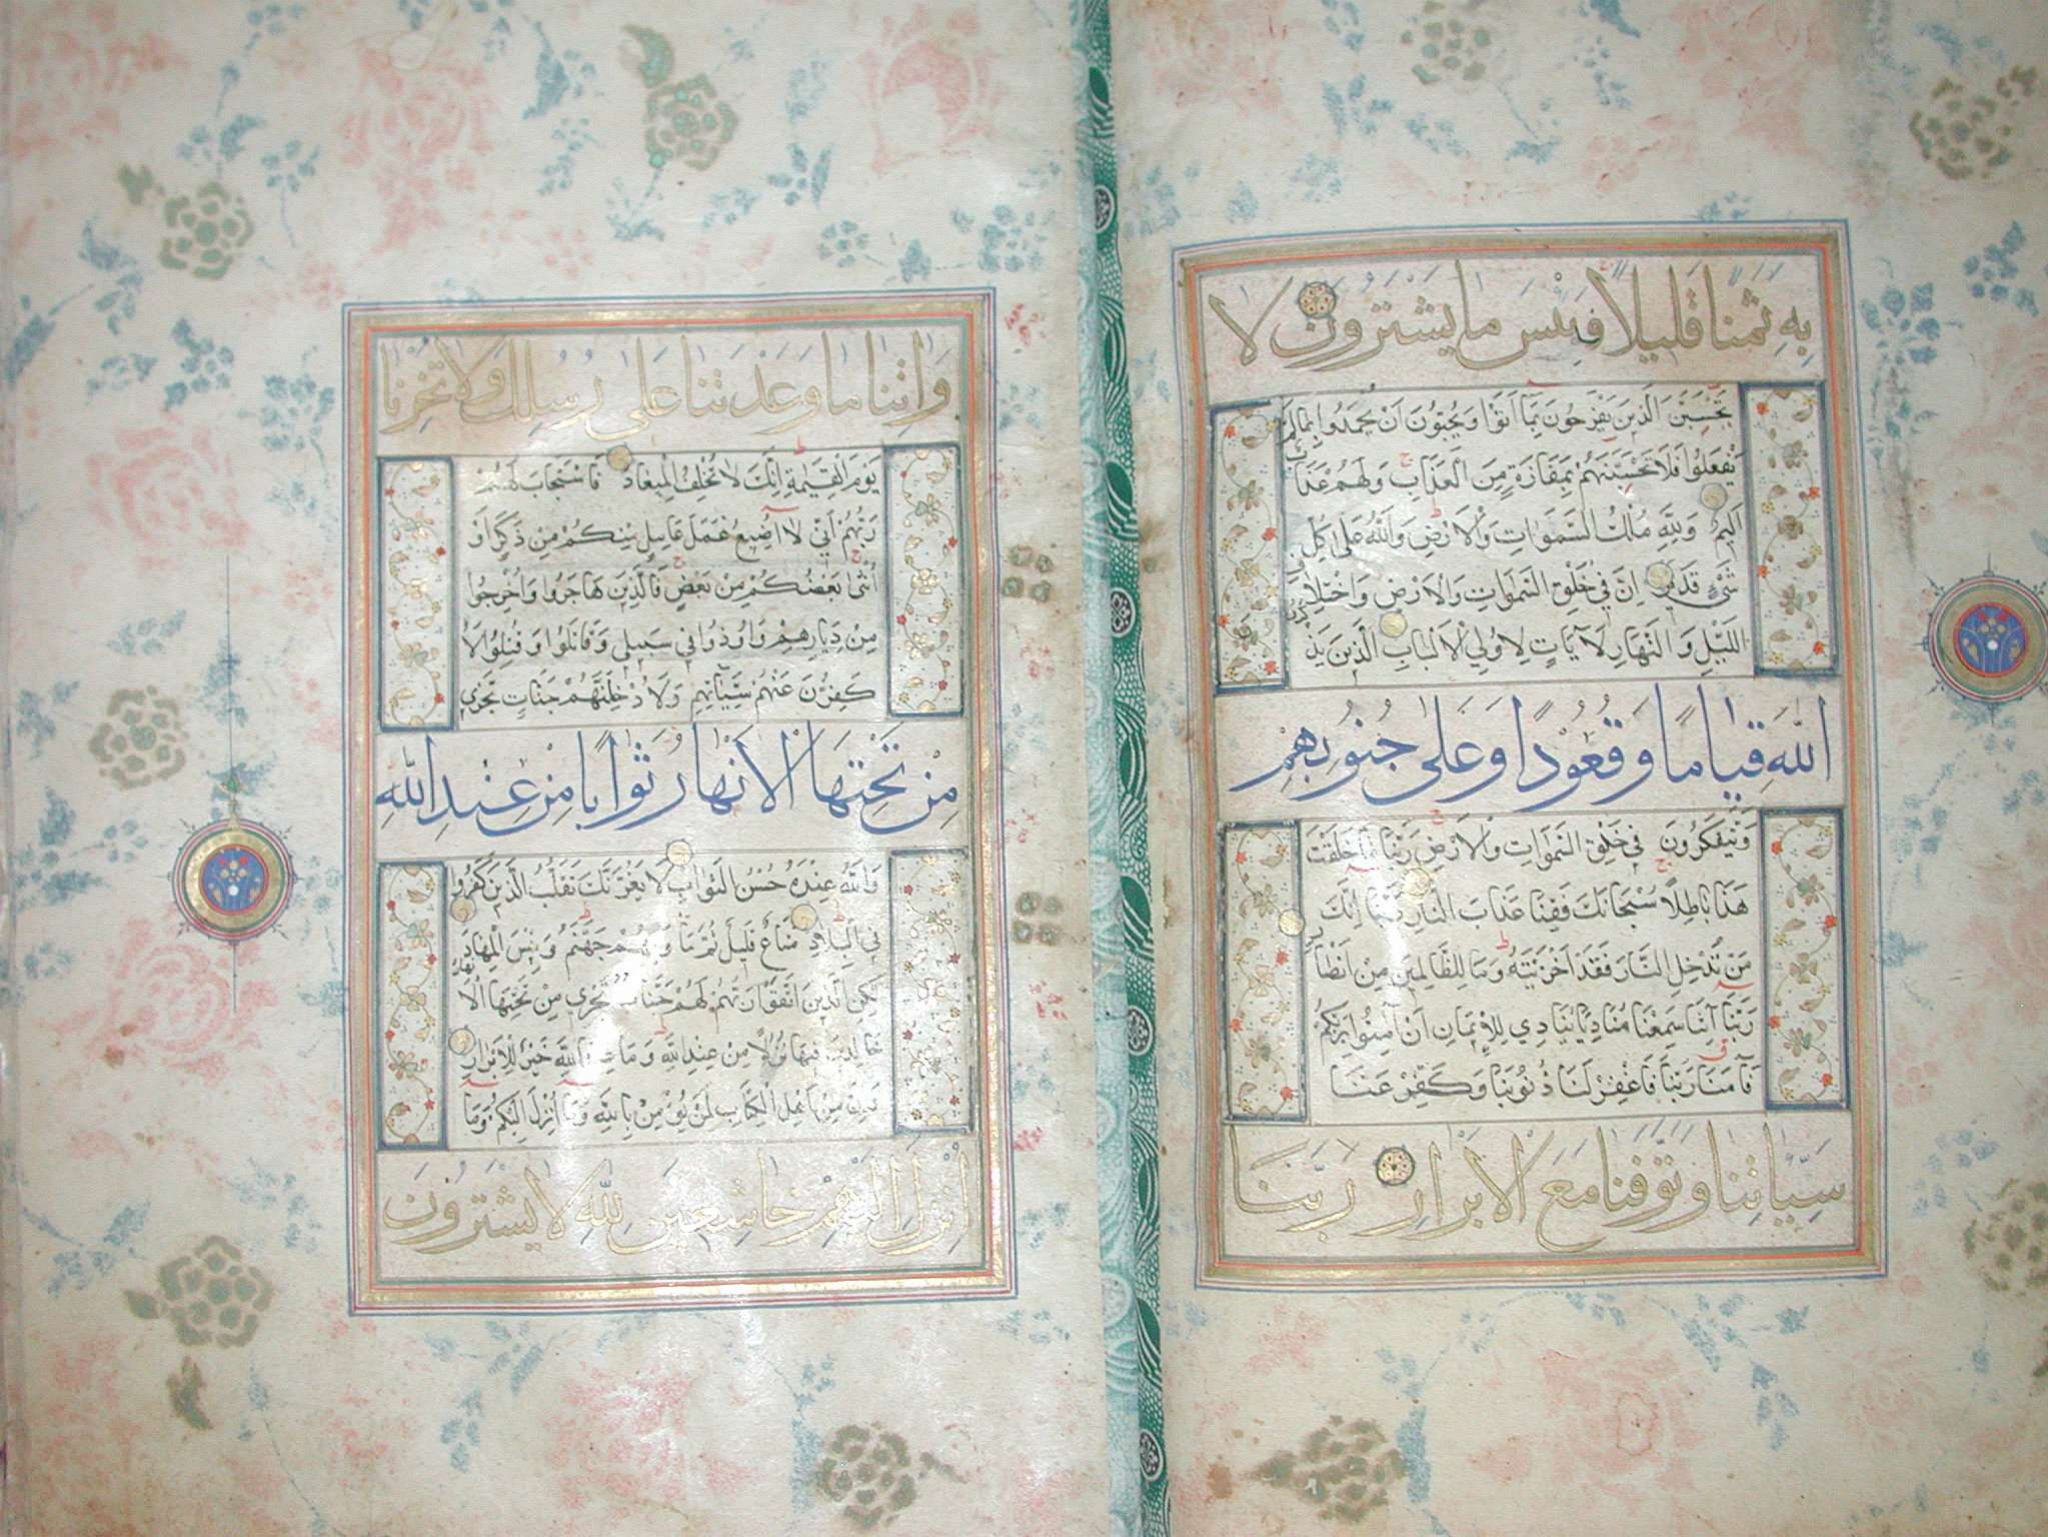 بِهِ ثَمَنًا قَلِيلًا فَبِئْسَ مَا يَشْتَرُونَ لَا
تَحْسَبَنَّ الَّذِينَ يَفْرَحُونَ بِمَا أَتَوْا وَيُحِبُّونَ أَنْ يُحْمَدُوا بِمَا لَمْ
يَفْعَلُوا فَلَا تَحْسَبَنَّهُمْ بِمَفَازَةٍ مِنَ الْعَذَابِ وَلَهُمْ عَذَابٌ
أَلِيمٌ وَلِلَّهِ مُلْكُ السَّمَوَاتِ وَالْأَرْضِ وَاللَّهُ عَلَى كُلِّ
شَيْءٍ قَدِيرٌ إِنَّ فِي خَلْقِ السَّمَوَاتِ وَالْأَرْضِ وَاخْتِلَافِ
اللَّيْلِ وَالنَّهَارِ لَآيَاتٍ لِأُولِي الْأَلْبَابِ الَّذِينَ يَذْكُرُونَ
اللَّهَ قِيَامًا وَقُعُودًا وَعَلَى جُنُوبِهِمْ
وَيَتَفَكَّرُونَ فِي خَلْقِ السَّمَوَاتِ وَالْأَرْضِ رَبَّنَا مَا خَلَقْتَ
هَذَا بَاطِلًا سُبْحَانَكَ فَقِنَا عَذَابَ النَّارِ رَبَّنَا إِنَّكَ
مَنْ تُدْخِلِ النَّارَ فَقَدْ أَخْزَيْتَهُ وَمَا لِلظَّالِمِينَ مِنْ أَنْصَارٍ
رَبَّنَا إِنَّنَا سَمِعْنَا مُنَادِيًا يُنَادِي لِلْإِيمَانِ أَنْ آمِنُوا بِرَبِّكُمْ
فَآمَنَّا رَبَّنَا فَاغْفِرْ لَنَا ذُنُوبَنَا وَكَفِّرْ عَنَّا
سَيِّئَاتِنَا وَتَوَفَّنَا مَعَ الْأَبْرَارِ رَبَّنَا
وَآتِنَا مَا وَعَدْتَنَا عَلَى رُسُلِكَ وَلَا تُخْزِنَا
يَوْمَ الْقِيَامَةِ إِنَّكَ لَا تُخْلِفُ الْمِيعَادَ فَاسْتَجَابَ لَهُمْ
رَبُّهُمْ أَنِّي لَا أُضِيعُ عَمَلَ عَامِلٍ مِنْكُمْ مِنْ ذَكَرٍ أَوْ
أُنْثَى بَعْضُكُمْ مِنْ بَعْضٍ فَالَّذِينَ هَاجَرُوا وَأُخْرِجُوا
مِنْ دِيَارِهِمْ وَأُوذُوا فِي سَبِيلِي وَقَاتَلُوا وَقُتِلُوا لَأُ
كَفِّرَنَّ عَنْهُمْ سَيِّئَاتِهِمْ وَلَأُدْخِلَنَّهُمْ جَنَّاتٍ تَجْرِي
مِنْ تَحْتِهَا الْأَنْهَارُ ثَوَابًا مِنْ عِنْدِ اللَّهِ
وَاللَّهُ عِنْدَهُ حُسْنُ الثَّوَابِ لَا يَغُرَّنَّكَ تَقَلُّبُ الَّذِينَ كَفَرُوا
فِي الْبِلَادِ مَتَاعٌ قَلِيلٌ ثُمَّ مَأْوَاهُمْ جَهَنَّمُ وَبِئْسَ الْمِهَادُ
لَكِنِ الَّذِينَ اتَّقَوْا رَبَّهُمْ لَهُمْ جَنَّاتٌ تَجْرِي مِنْ تَحْتِهَا الْأَنْهَارُ
خَالِدِينَ فِيهَا نُزُلًا مِنْ عِنْدِ اللَّهِ وَمَا عِنْدَ اللَّهِ خَيْرٌ لِلْأَبْرَارِ
وَإِنَّ مِنْ أَهْلِ الْكِتَابِ لَمَنْ يُؤْمِنُ بِاللَّهِ وَمَا أُنْزِلَ إِلَيْكُمْ وَمَا
أُنْزِلَ إِلَيْهِمْ خَاشِعِينَ لِلَّهِ لَا يَشْتَرُونَ